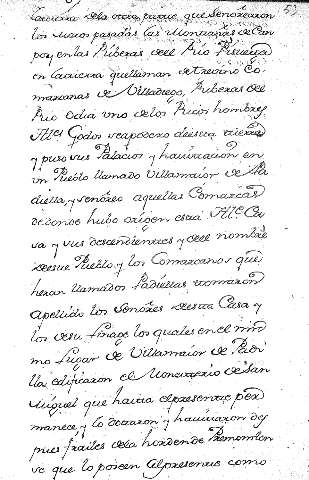 53
la tierra de la otra parte que señorearon
los moros pasadas las Montañas de Cam
poo, en las Riberas de el Rio Pisuerga
en la tierra que llaman de Trevino Co
marcanas de Villadiego, Riberas del
Rio Odra uno de los Ricos hombres,
Yllᵉˢ Godos se apodero de esta tierra
y puso sus Palacios y havitacion en
un Pueblo llamado Villamaior de Pa
dilla, y señoreo aquellas Comarcas
de donde hubo origen esta Yllᵉ Ca
sa y sus descendientes y de el nombre
de este Pueblo, y los Comarcanos que
heran llamados Padillas tomaron
apellido los señores de esta Casa y
los de su linage los quales en el mis
mo Lugar de Villamaior de Padi
lla edificaron el Monesterio de San
Miguel que hasta el presente per
manece y lo dotaron y havitaron des
pues frailes de la horden de Premonsten
se que lo poseen al presente como